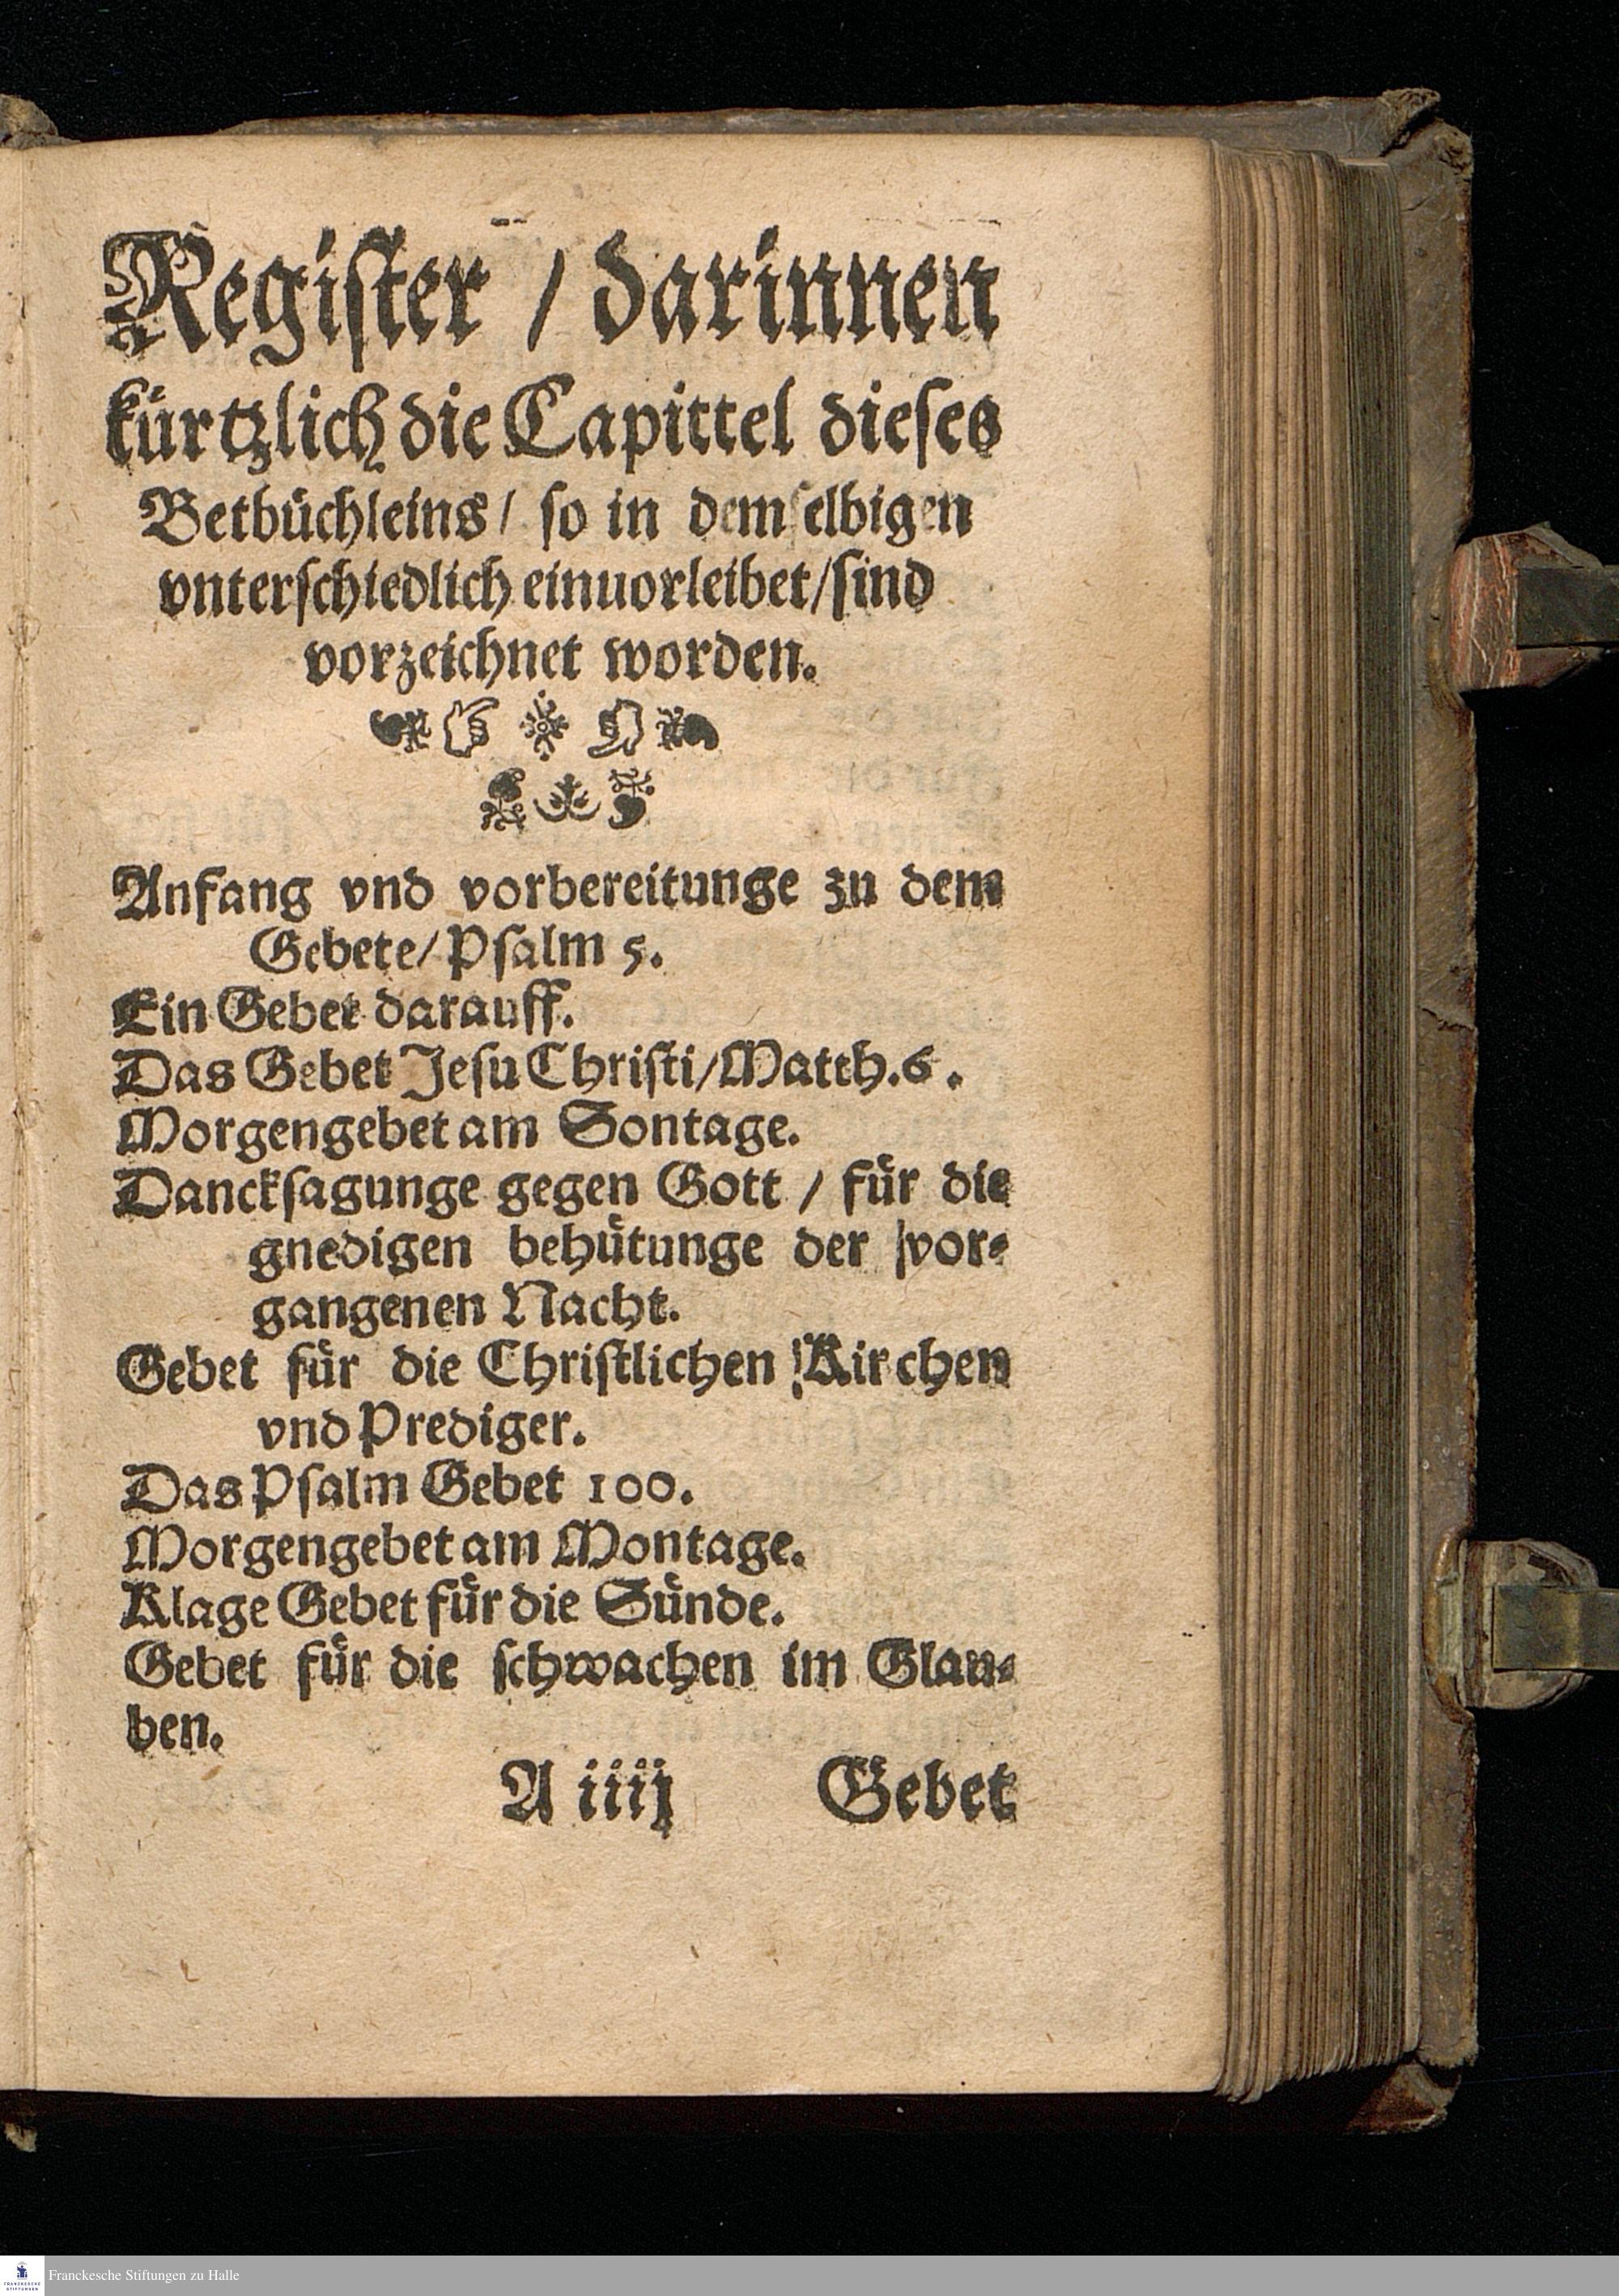 Register / darinnen
kürtzlich die Capittel dieses
Betbüchleins / so in demselbigen
vnterschiedlich einuorleibet / sind
vorzeichnet worden.
Anfang vnd vorbereitunge zu dem
Gebete / Psalm 5.
Ein Gebet darauff.
Das Gebet Jesu Christi / Matth. 6.
Morgengebet am Sontage.
Dancksagunge gegen Gott / für die
gnedigen behütunge der vor-
gangenen Nacht.
Gebet für die Christlichen Kirchen
vnd Prediger.
Das Psalm Gebet 100.
Morgengebet am Montage.
Klage Gebet für die Sünde.
Gebet für die schwachen im Glau-
ben.
A iiij Gebet
FRANCKESCHE STIFTUNGEN
Franckesche Stiftungen zu Halle